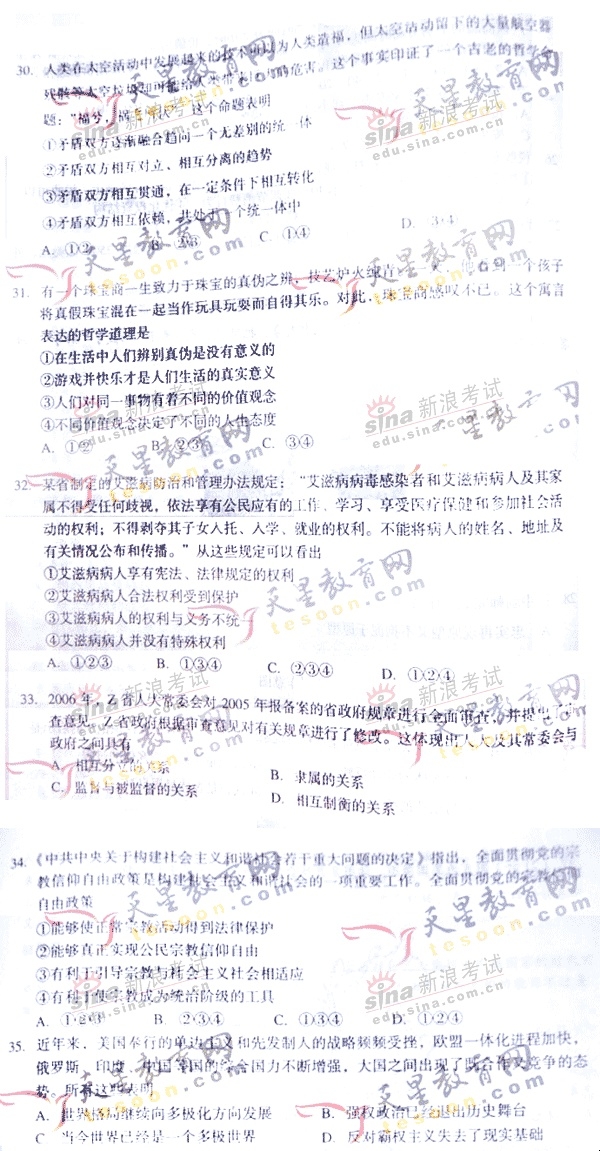 30. 人类在太空活动中发展起来的技术可以为人类造福，但太空活动留下的大量航空器
残骸等太空垃圾却可能给人类带来的危害。这个事实印证了一个古老的哲学命
题："福兮，祸"这个命题表明
①矛盾双方逐渐融合趋向一个无差别的统一体
②矛盾双方相互对立、相互分离的趋势
③矛盾双方相互贯通，在一定条件下相互转化
④矛盾双方相互依赖，共处于一个统一体中
A. ①② B. ②③ C. ①④ D. ③④
31. 有一个珠宝商一生致力于珠宝的真伪之辨，技艺炉火纯青。一天，他看到一个孩子
将真假珠宝混在一起当作玩具玩耍而自得其乐。对此，珠宝商感叹不已。这个寓言
表达的哲学道理是
①在生活中人们辨别真伪是没有意义的
②游戏并快乐才是人们生活的真实意义
③人们对同一事物有着不同的价值观念
④不同价值观念决定了不同的人生态度
A. ①② B. ②③ C. ③④
32. 某省制定的艾滋病防治和管理办法规定："艾滋病病毒感染者和艾滋病病人及其家
属不得受任何歧视，依法享有公民应有的工作、学习、享受医疗保健和参加社会活
动的权利；不得剥夺其子女入托、入学、就业的权利。不能将病人的姓名、地址及
有关情况公布和传播。"从这些规定可以看出
①艾滋病病人享有宪法、法律规定的权利
②艾滋病病人合法权利受到保护
③艾滋病病人的权利与义务不统一
④艾滋病病人并没有特殊权利
A. ①②③ B. ①③④ C. ②③④ D. ①②④
33. 2006 年，乙省人大常委会对 2005 年报备案的省政府规章进行全面审查，并提出了审
查意见，乙省政府根据审查意见对有关规章进行了修改。这体现出人大及其常委会与
政府之间具有
A. 相互分立的关系 B. 隶属的关系
C. 监督与被监督的关系 D. 相互制衡的关系
34. 《中共中央关于构建社会主义和谐社会若干重大问题的决定》指出，全面贯彻党的宗
教信仰自由政策是构建社会主义和谐社会的一项重要工作。全面贯彻党的宗教信仰
自由政策
①能够使正常宗教活动得到法律保护
②能够真正实现公民宗教信仰自由
③有利于引导宗教与社会主义社会相适应
④有利于使宗教成为统治阶级的工具
A. ①②③ B. ②③④ C. ①③④ D. ①②④
35. 近年来，美国奉行的单边主义和先发制人的战略频频受挫，欧盟一体化进程加快，
俄罗斯、印度、中国等国的综合国力不断增强，大国之间出现了既合作又竞争的态
势。所有这些表明
A. 世界格局继续向多极化方向发展 B. 强权政治已经退出历史舞台
C 当今世界已经是一个多极世界 D. 反对霸权主义失去了现实基础
天星教育网
tesoon.com
sina 新浪考试
edu.sina.com.cn